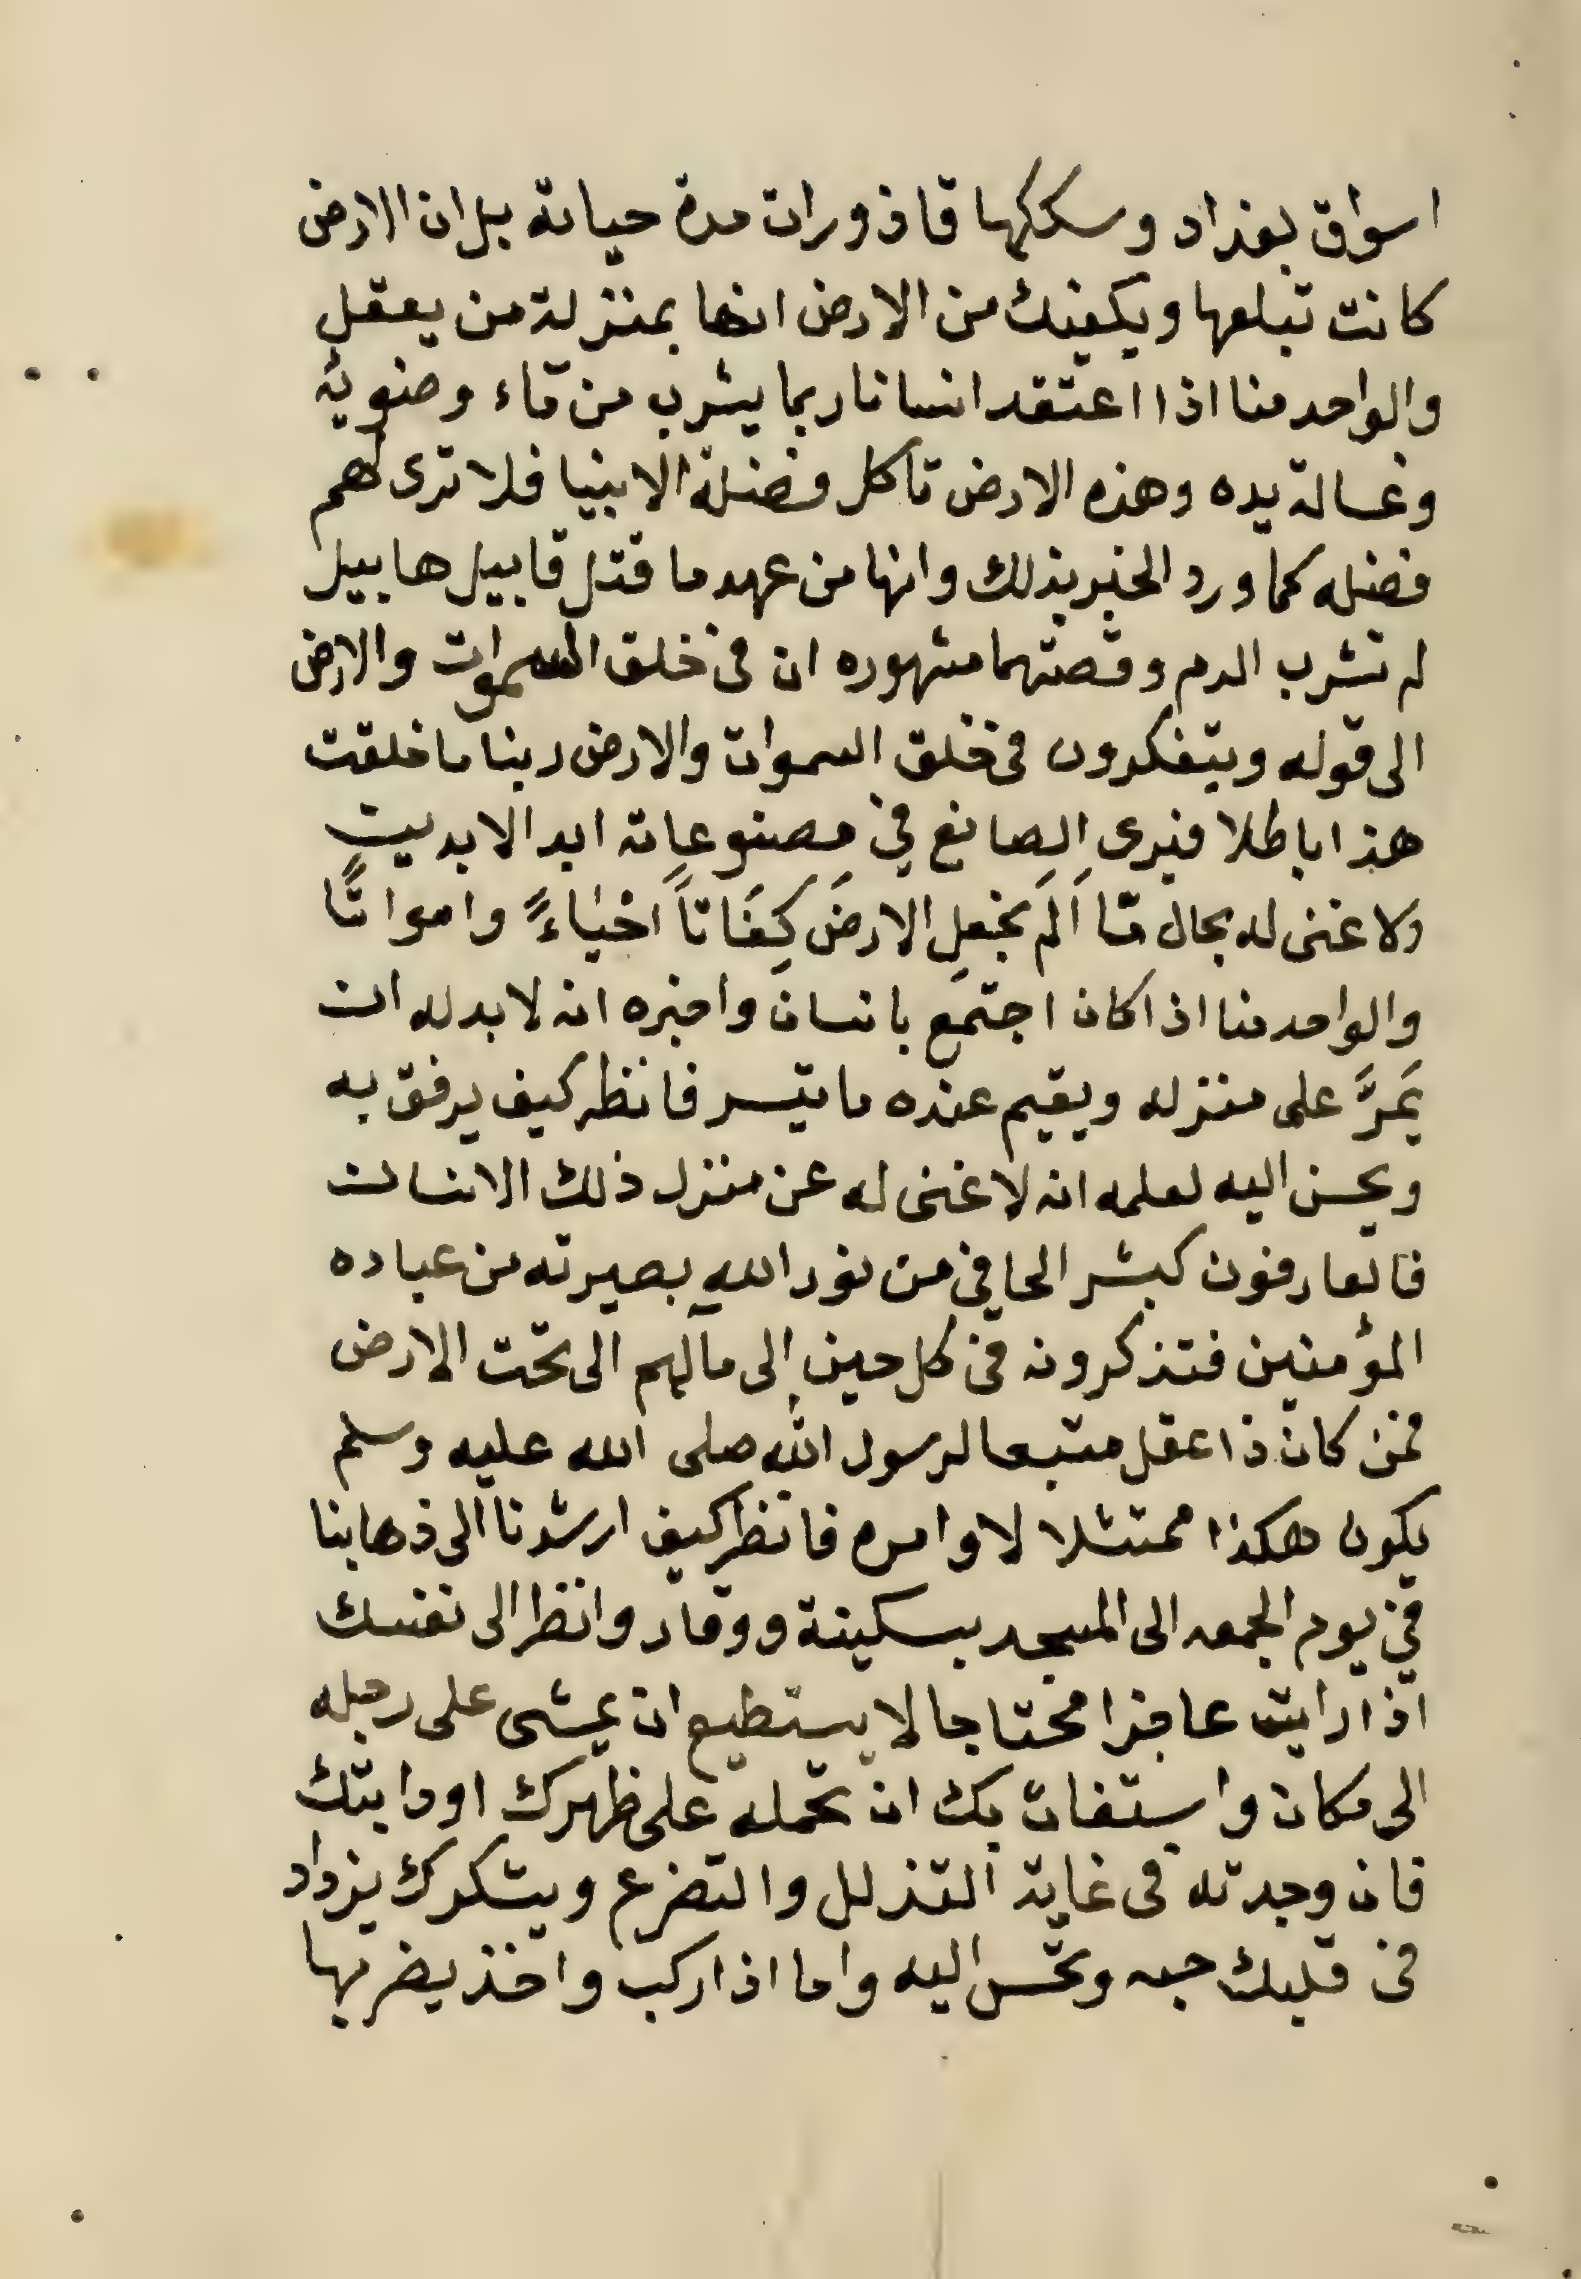 اسواق بغداد وسككها قاذورات مدة حياته بل ان الارض
كانت تبلعها ويكفيك من الارض انها بمنزلة من يعقل
والواحد منا اذا اعتقد انسانا ربما يشرب من ماء وضوئه
وغسالة يده وهذه الارض تاكل فضلة الانبيا فلا ترى لهم
فضله كما ورد الخبر بذلك وانها من عهد ما قتل قابيل هابيل
لم تشرب الدم وقصتهما مشهوره ان فى خلق السموات والارض
الى قوله ويتفكرون فى خلق السموات والارض ربنا ما خلقت
هذا باطلا فيرى الصانع في مصنوعاته ابد الابديت
ولا غنى له بحال مّا اَلَم نجعلِ الارضَ كِفَاتاً اَحْيَاءً وامواتًا
والواحد منا اذا كان اجتمع بانسان واخبره انه لا بد له ان
يَمرَّ على منزله ويقيم عنده ما تيسر فانظر كيف يرفق به
ويحسن اليه لعلمه انه لا غنى له عن منزل ذلك الانسان
فالعارفون كبشر الحافي من نور الله بصيرته من عباده
المؤمنين فتذكرونه فى كل حين إلى مآلهم الى تحت الارض
فمن كان ذا عقل متبعا لرسول الله صلى الله عليه وسلم
يكون هكذا ممتثلا لاوامره فانظر كيف ارشدنا الى ذهابنا
في يوم الجمعه الى المسجد بسكينة ووقار وانظر الى نفسك
اذا رايت عاجزا محتاجا لا يستطيع ان يمشى على رجله
الى مكان واستغاث بك ان تحمله على ظهرك او دابتك
فان وجدته فى غاية التذلل والتضرع ويشكرك يزداد
فى قلبك حبه وتحسن اليه واما اذا ركب واخذ يضربها